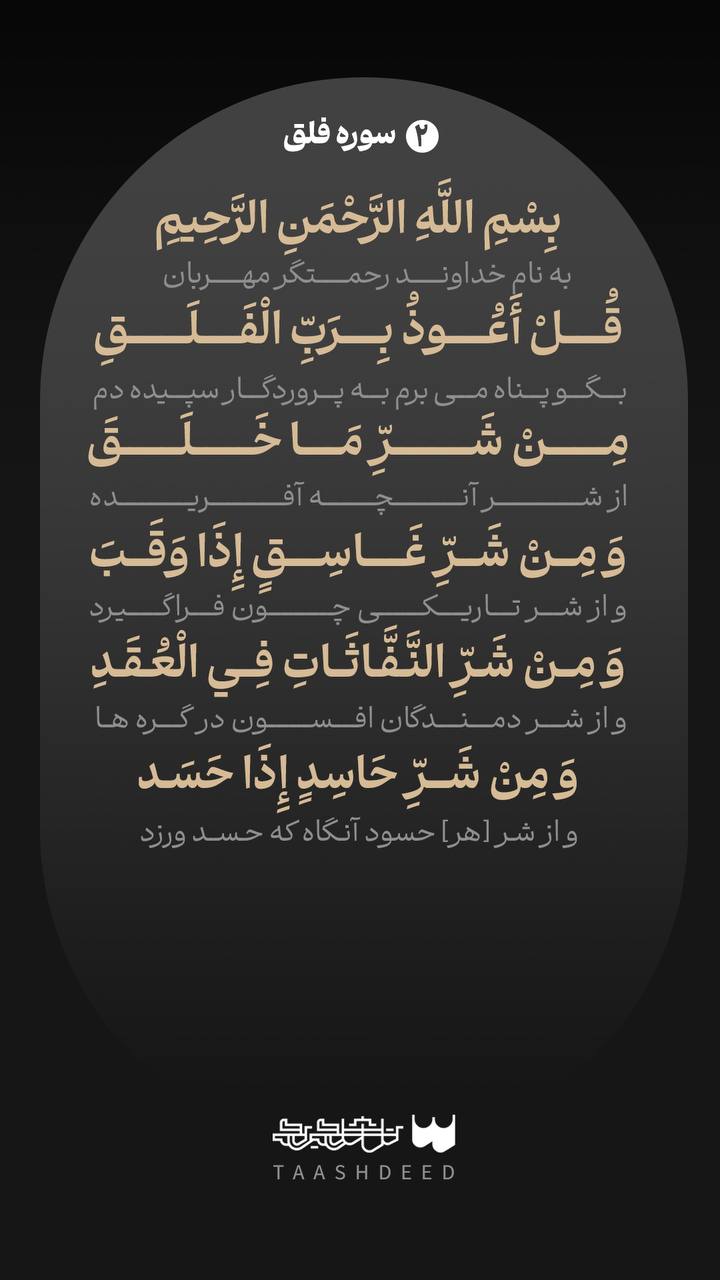 ۲ سوره فلق
بِسْمِ اللَّهِ الرَّحْمَنِ الرَّحِيمِ
به نام خداوند رحمتگر مهربان
قُلْ أَعُوذُ بِرَبِّ الْفَلَقِ
بگو پناه می برم به پروردگار سپیده دم
مِنْ شَرِّ مَا خَلَقَ
از شر آنچه آفریده
وَ مِنْ شَرِّ غَاسِقٍ إِذَا وَقَبَ
و از شر تاریکی چون فراگیرد
وَ مِنْ شَرِّ النَّفَّاثَاتِ فِي الْعُقَدِ
و از شر دمندگان افسون در گره ها
وَ مِنْ شَرِّ حَاسِدٍ إِذَا حَسَد
و از شر [هر] حسود آنگاه که حسد ورزد
TAASHDEED